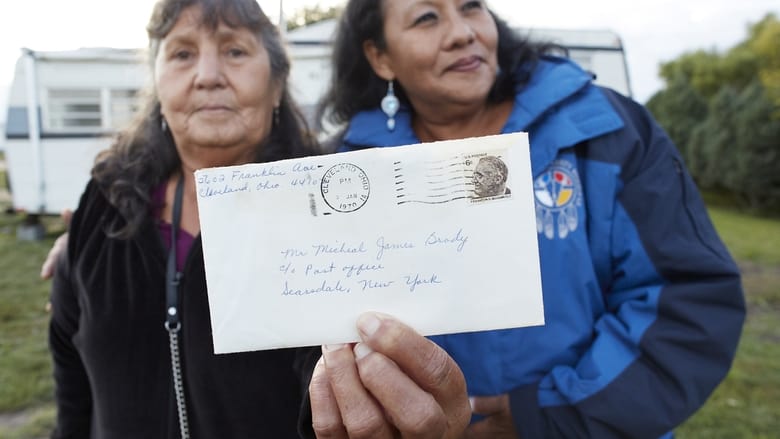 3602 Franklin Ave
Cleveland, Ohio
CLEVELAND, OHIO
PM
JAN
1970
U.S. POSTAGE
6¢
Mr Micheal James Brody
c/o Post office
Scarsdale, New York